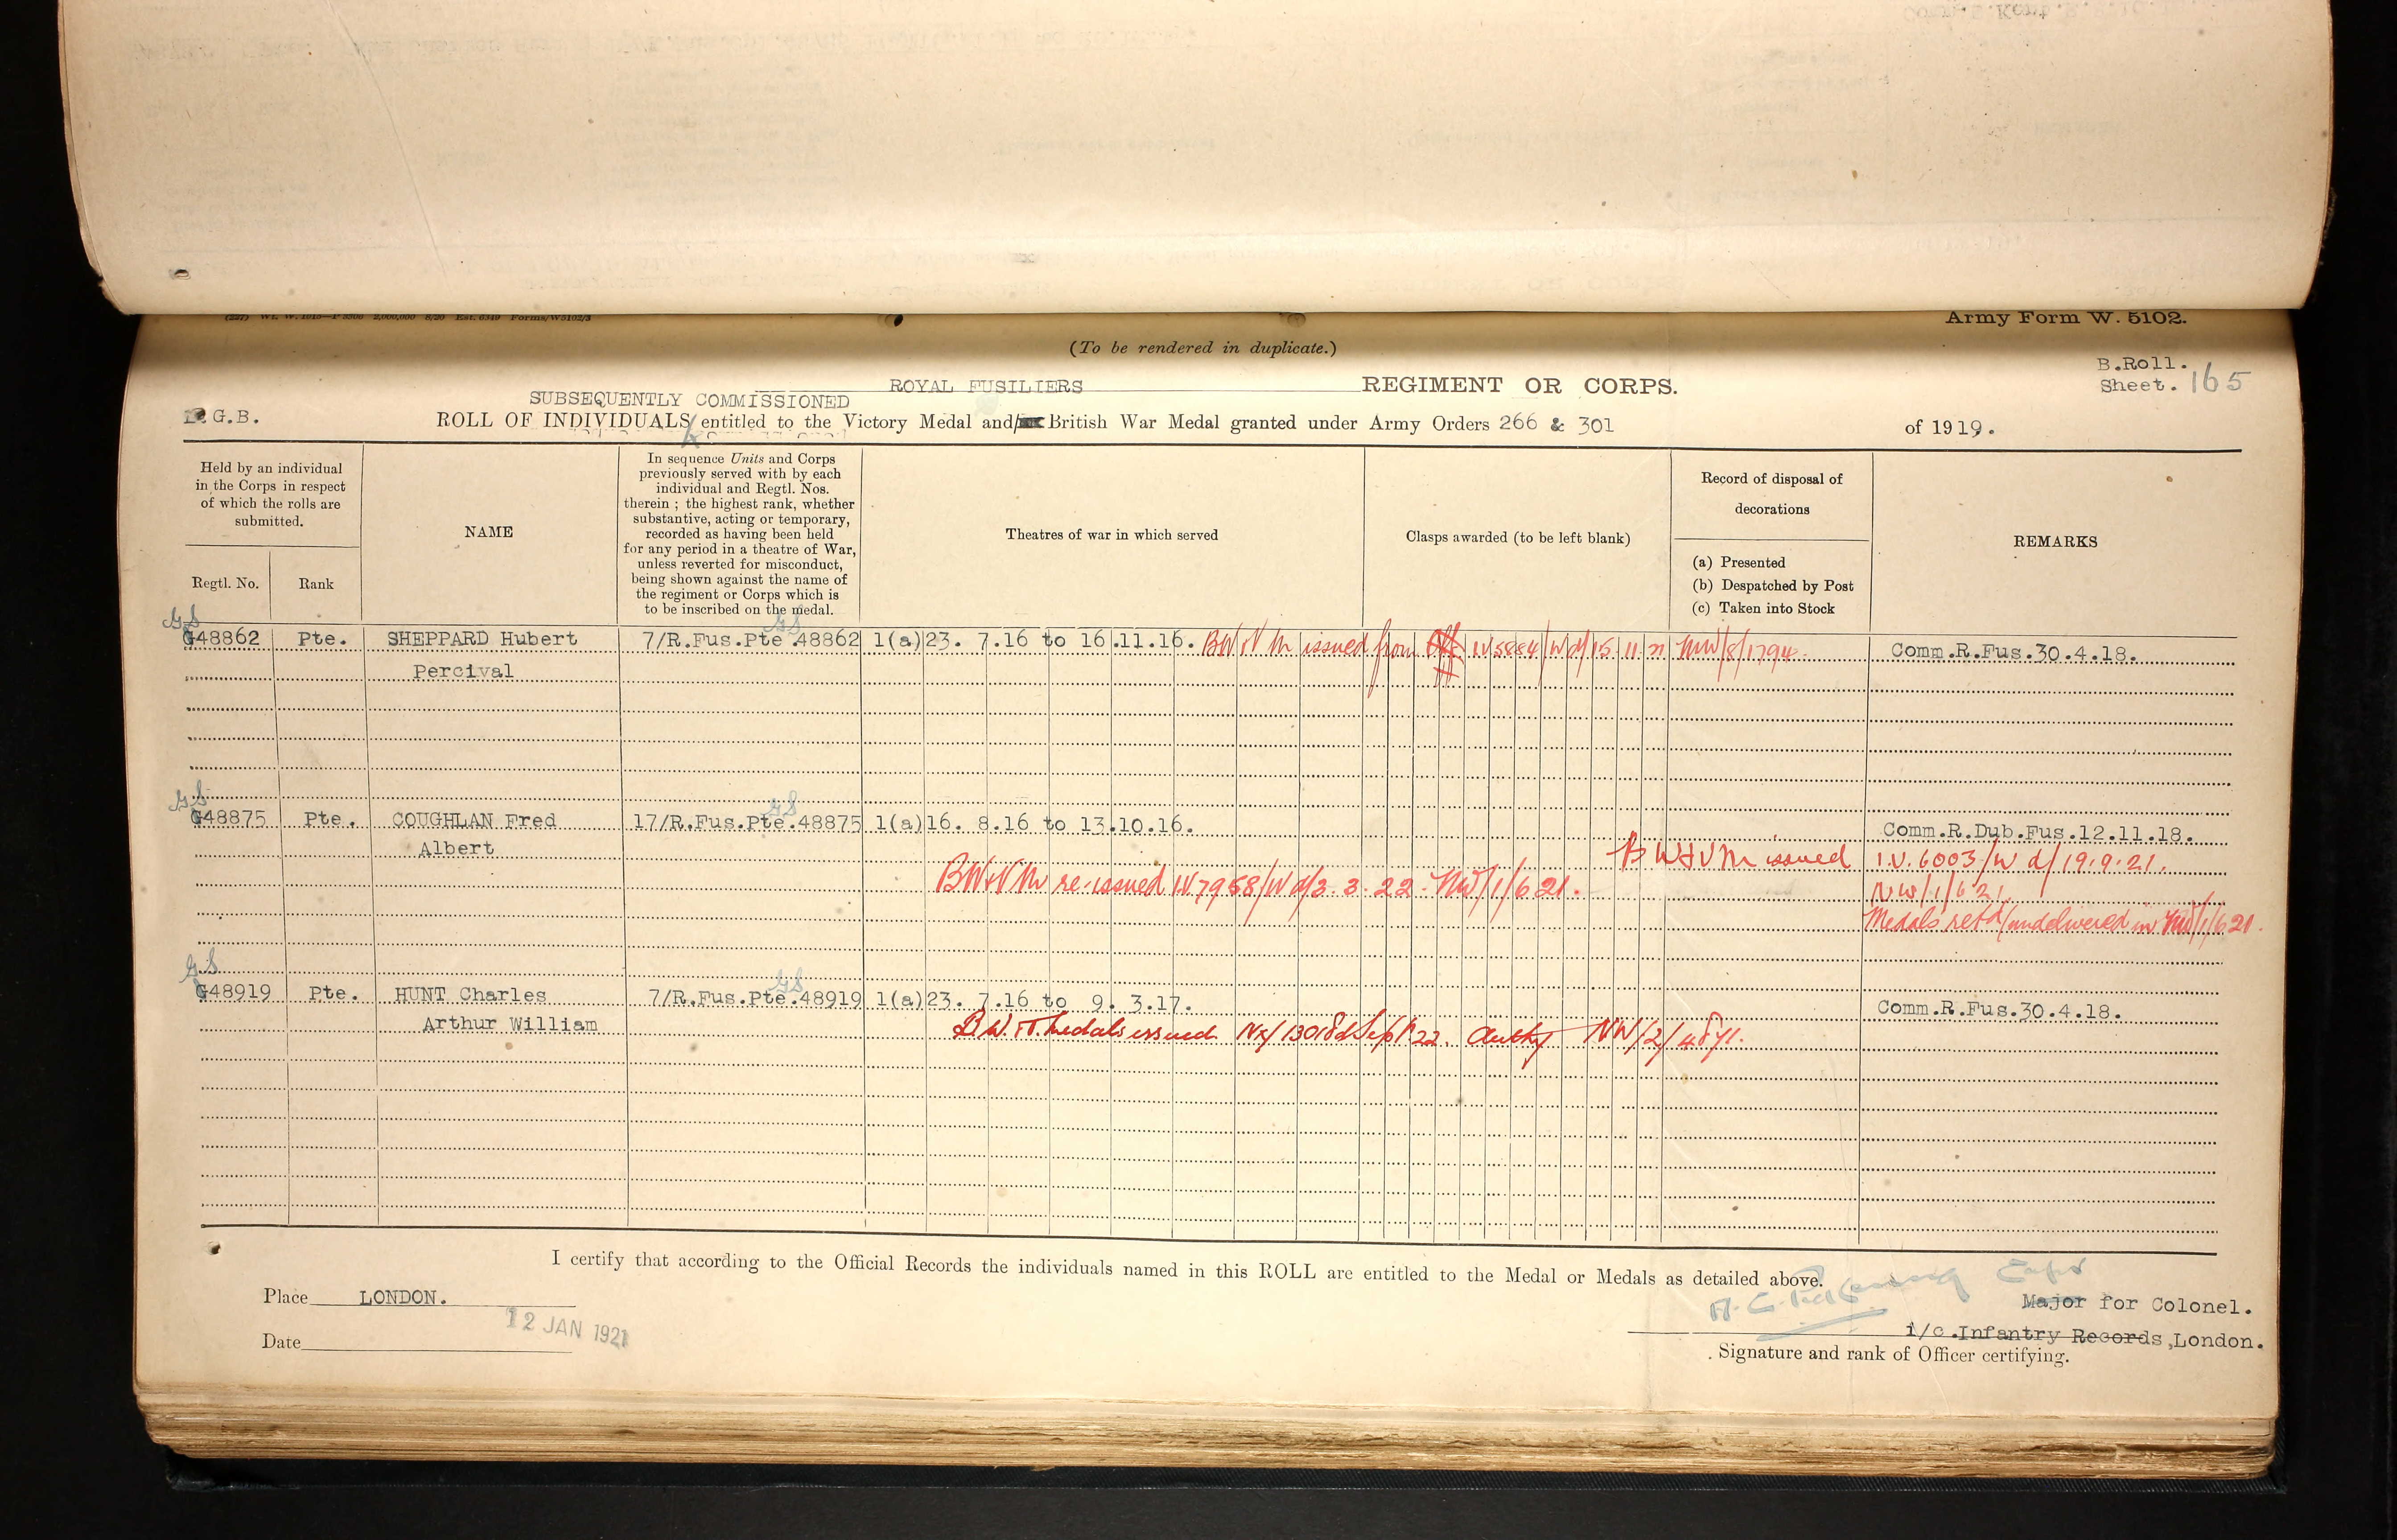 Army Form W. 5102.
(To be rendered in duplicate.)
B.Roll.
Sheet. 165
ROYAL FUSILIERS REGIMENT OR CORPS.
SUBSEQUENTLY COMMISSIONED
G.B.
ROLL OF INDIVIDUALS entitled to the Victory Medal and British War Medal granted under Army Orders 266 & 301 of 1919.
Held by an individual
in the Corps in respect
of which the rolls are
submitted.
Regtl. No.
Rank
NAME
In sequence Units and Corps
previously served with by each
individual and Regtl. Nos.
therein ; the highest rank, whether
substantive, acting or temporary,
recorded as having been held
for any period in a theatre of War,
unless reverted for misconduct,
being shown against the name of
the regiment or Corps which is
to be inscribed on the medal.
Theatres of war in which served
Clasps awarded (to be left blank)
Record of disposal of
decorations
(a) Presented
(b) Despatched by Post
(c) Taken into Stock
REMARKS
GS GS
G48862 Pte. SHEPPARD Hubert 7/R.Fus.Pte.48862 1(a) 23. 7.16 to 16.11.16. BW & VM issued from IV 5884/W d/15 11 21 NW/8/1794. Comm.R.Fus.30.4.18.
Percival
GS GS
G48875 Pte. COUGHLAN Fred 17/R.Fus.Pte.48875 1(a) 16. 8.16 to 13.10.16. Comm.R.Dub.Fus.12.11.18.
Albert BW & VM issued I.V. 6003/W d/19.9.21.
BW & VM re-issued IV 7958/W d/3. 3. 22. NW/1/621. NW/1/621.
Medals retd/undelivered in NW/1/621.
GS GS
G48919 Pte. HUNT Charles 7/R.Fus.Pte.48919 1(a) 23. 7.16 to 9. 3.17. Comm.R.Fus.30.4.18.
Arthur William B.W. & V. Medals issued Authy NW/2/4871.
I certify that according to the Official Records the individuals named in this ROLL are entitled to the Medal or Medals as detailed above.
Place LONDON.
Capt
Major for Colonel.
12 JAN 1921
Date
i/c.Infantry Records,London.
Signature and rank of Officer certifying.